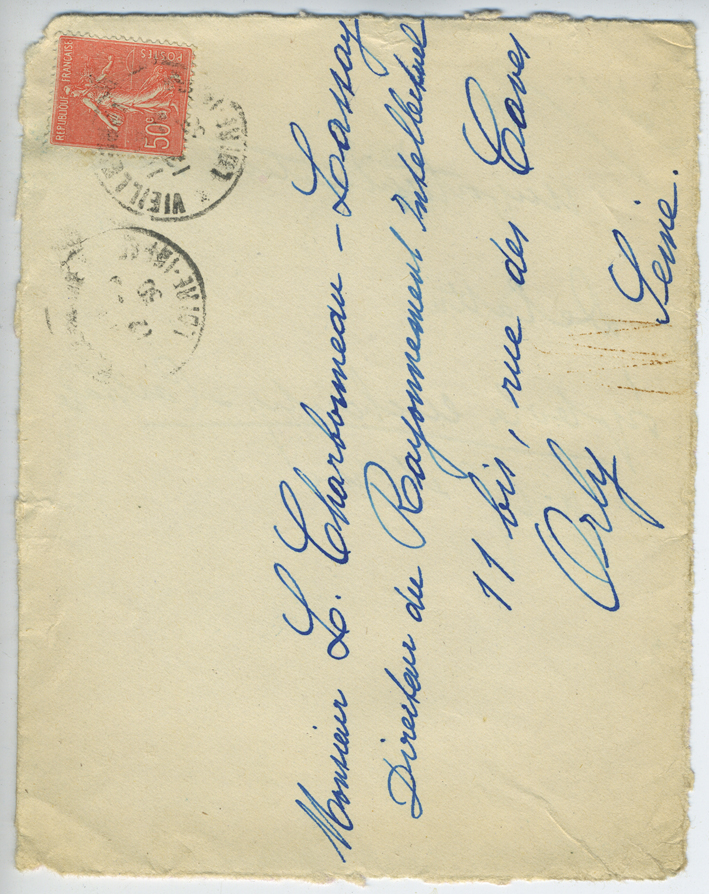 REPUBLIQUE FRANÇAISE
POSTES
50c
VIEILLE
LOIRE
Monsieur L. Charbonneau-Lassay
Directeur du Rayonnement Intellectuel
11 bis, rue des Caves
Orly
Seine.